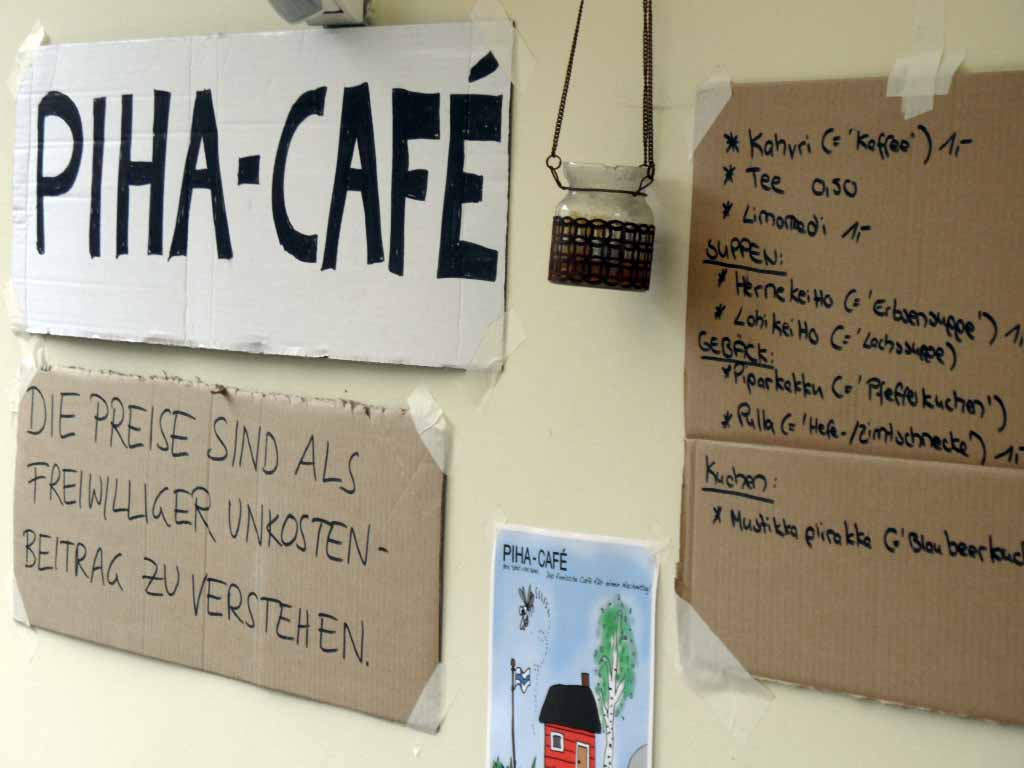 PIHA-CAFÉ
DIE PREISE SIND ALS
FREIWILLIGER UNKOSTEN-
BEITRAG ZU VERSTEHEN.
PIHA-CAFÉ
Das finnische Café für einen Nachmittag
* Kahvi (= 'Kaffee') 1,-
* Tee 0,50
* Limonadi 1,-
SUPPEN:
* Hernekeitto (= 'Erbsensuppe') 1,
* Lohikeitto (= 'Lachssuppe)
GEBÄCK:
* Piparkakku (= 'Pfefferkuchen')
* Pulla (= 'Hefe-/Zimtschnecke) 1,-
Kuchen:
* Mustikkapiirakka (= 'Blaubeerkuch